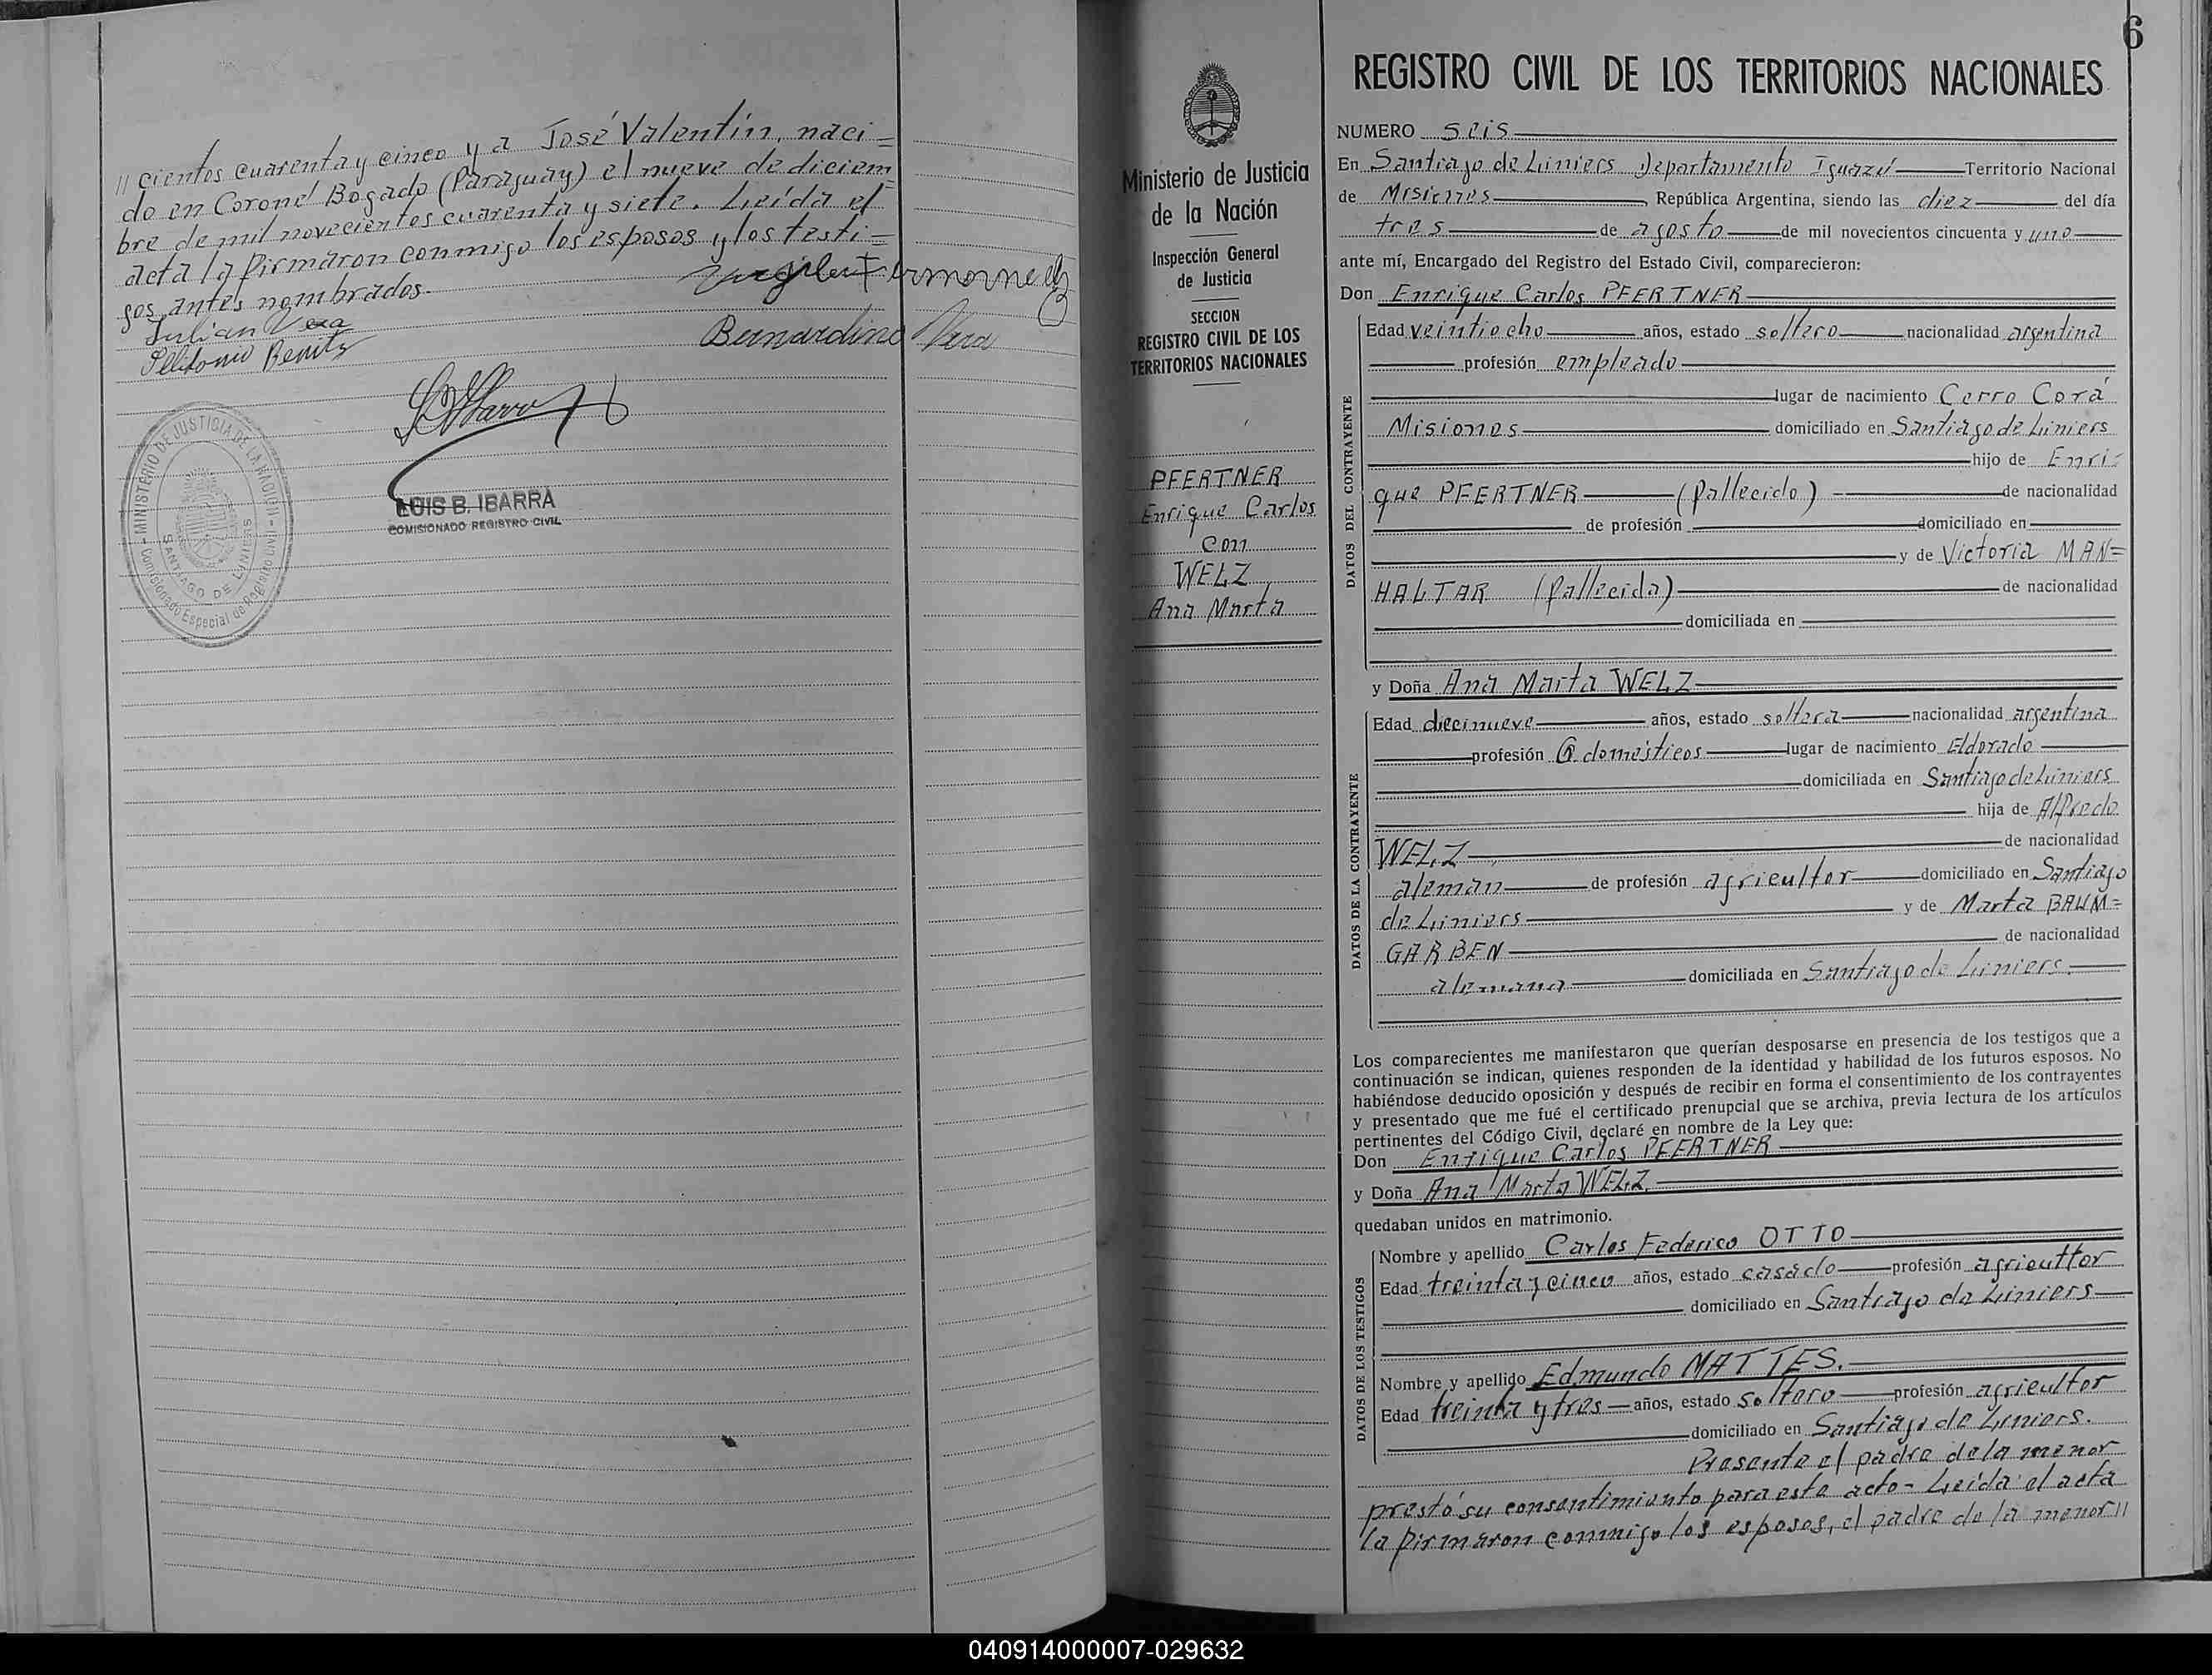 // cientos cuarenta y cinco y a José Valentín, naci=
do en Coronel Bogado (Paraguay) el nueve de diciem=
bre de mil novecientos cuarenta y siete. Leída el
acta la firmaron conmigo los esposos y los testi=
gos antes nombrados.
Julian Vera
Benitz
Bernardino Vera
MINISTERIO DE JUSTICIA DE LA NACION
SANTIAGO DE LINIERS
Comisionado Especial de Registro Civil
LUIS B. IBARRA
COMISIONADO REGISTRO CIVIL
Ministerio de Justicia
de la Nación
Inspección General
de Justicia
SECCION
REGISTRO CIVIL DE LOS
TERRITORIOS NACIONALES
PFERTNER
Enrique Carlos
con
WELZ
Ana Marta
6
REGISTRO CIVIL DE LOS TERRITORIOS NACIONALES
NUMERO seis
En Santiago de Liniers Departamento Iguazú Territorio Nacional
de Misiones, República Argentina, siendo las diez del día
tres de agosto de mil novecientos cincuenta y uno
ante mí, Encargado del Registro del Estado Civil, comparecieron:
Don Enrique Carlos PFERTNER
DATOS DEL CONTRAYENTE
Edad veintiocho años, estado soltero nacionalidad argentina
profesión empleado
lugar de nacimiento Cerro Corá
Misiones domiciliado en Santiago de Liniers
hijo de Enri=
que PFERTNER (fallecido) de nacionalidad
de profesión domiciliado en
y de Victoria MAN=
HALTAR (fallecida) de nacionalidad
domiciliada en
y Doña Ana Marta WELZ
DATOS DE LA CONTRAYENTE
Edad diecinueve años, estado soltera nacionalidad argentina
profesión Q. domésticos lugar de nacimiento Eldorado
domiciliada en Santiago de Liniers
hija de Alfredo
WELZ de nacionalidad
aleman de profesión agricultor domiciliado en Santiago
de Liniers y de Marta BAUM=
GARBEN de nacionalidad
alemana domiciliada en Santiago de Liniers.
Los comparecientes me manifestaron que querían desposarse en presencia de los testigos que a
continuación se indican, quienes responden de la identidad y habilidad de los futuros esposos. No
habiéndose deducido oposición y después de recibir en forma el consentimiento de los contrayentes
y presentado que me fué el certificado prenupcial que se archiva, previa lectura de los artículos
pertinentes del Código Civil, declaré en nombre de la Ley que:
Don Enrique Carlos PFERTNER
y Doña Ana Marta WELZ
quedaban unidos en matrimonio.
DATOS DE LOS TESTIGOS
Nombre y apellido Carlos Federico OTTO
Edad treinta y cinco años, estado casado profesión agricultor
domiciliado en Santiago de Liniers
Nombre y apellido Edmundo MATTES.
Edad treinta y tres años, estado soltero profesión agricultor
domiciliado en Santiago de Liniers.
Presente el padre de la menor
prestó su consentimiento para este acto - Leída el acta
la firmaron conmigo los esposos, el padre de la menor //
040914000007-029632